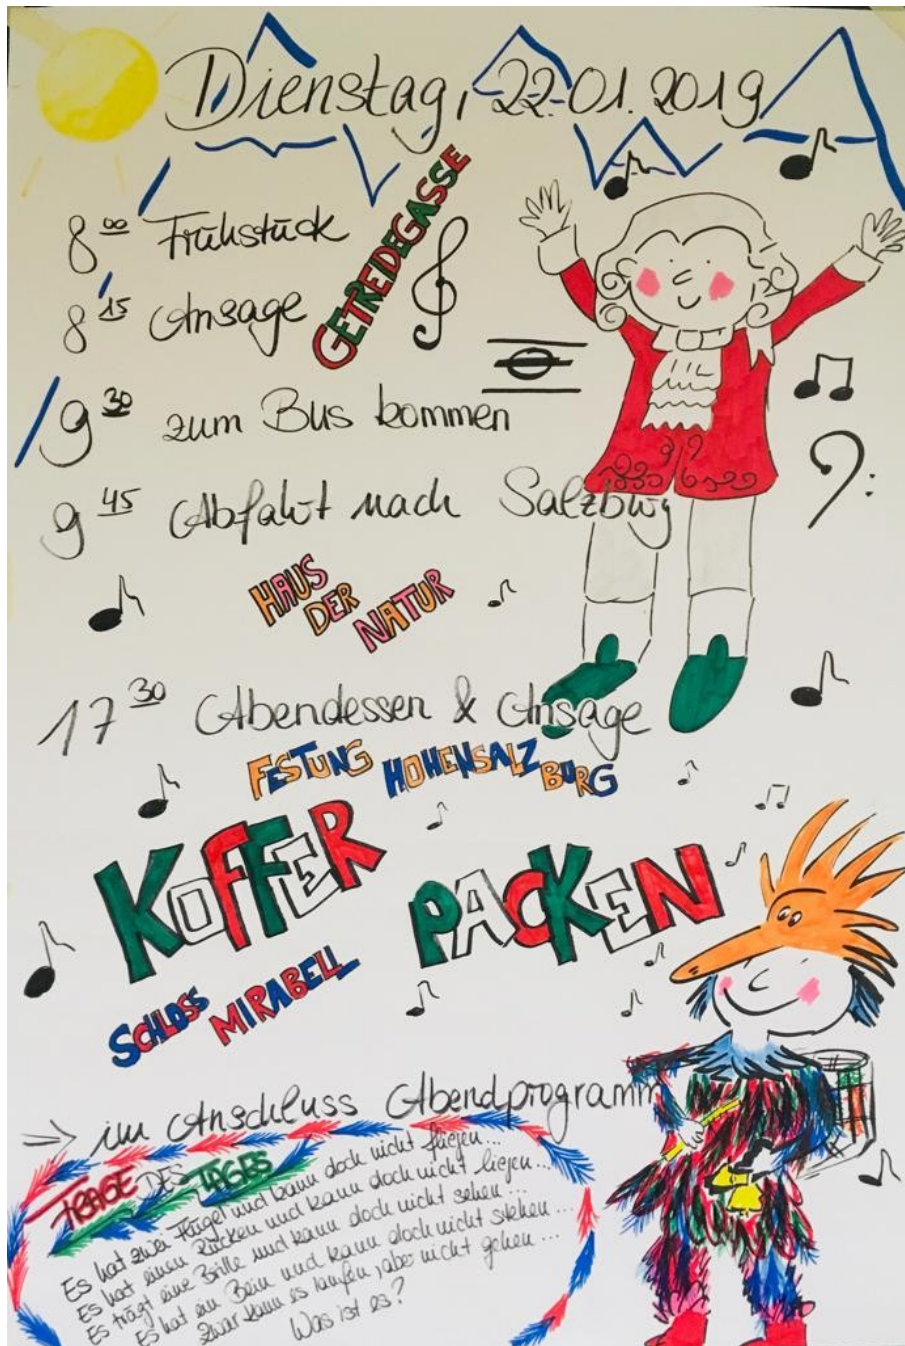 Dienstag, 22.01.2019
8 00 Frühstück
GETREIDEGASSE
8 15 Ansage
9 30 zum Bus kommen
9 45 Abfahrt nach Salzburg
HAUS
DER
NATUR
17 30 Abendessen & Ansage
FESTUNG HOHENSALZ
BURG
KOFFER PACKEN
SCHLOSS MIRABELL
⇒ im Anschluss Abendprogramm
FRAGE DES TAGES
Es hat zwei Flügel und kann doch nicht fliegen...
Es hat einen Rücken und kann doch nicht liegen...
Es trägt eine Brille und kann doch nicht sehen...
Es hat ein Bein und kann doch nicht stehen...
Zwar kann es laufen, aber nicht gehen...
Was ist es?